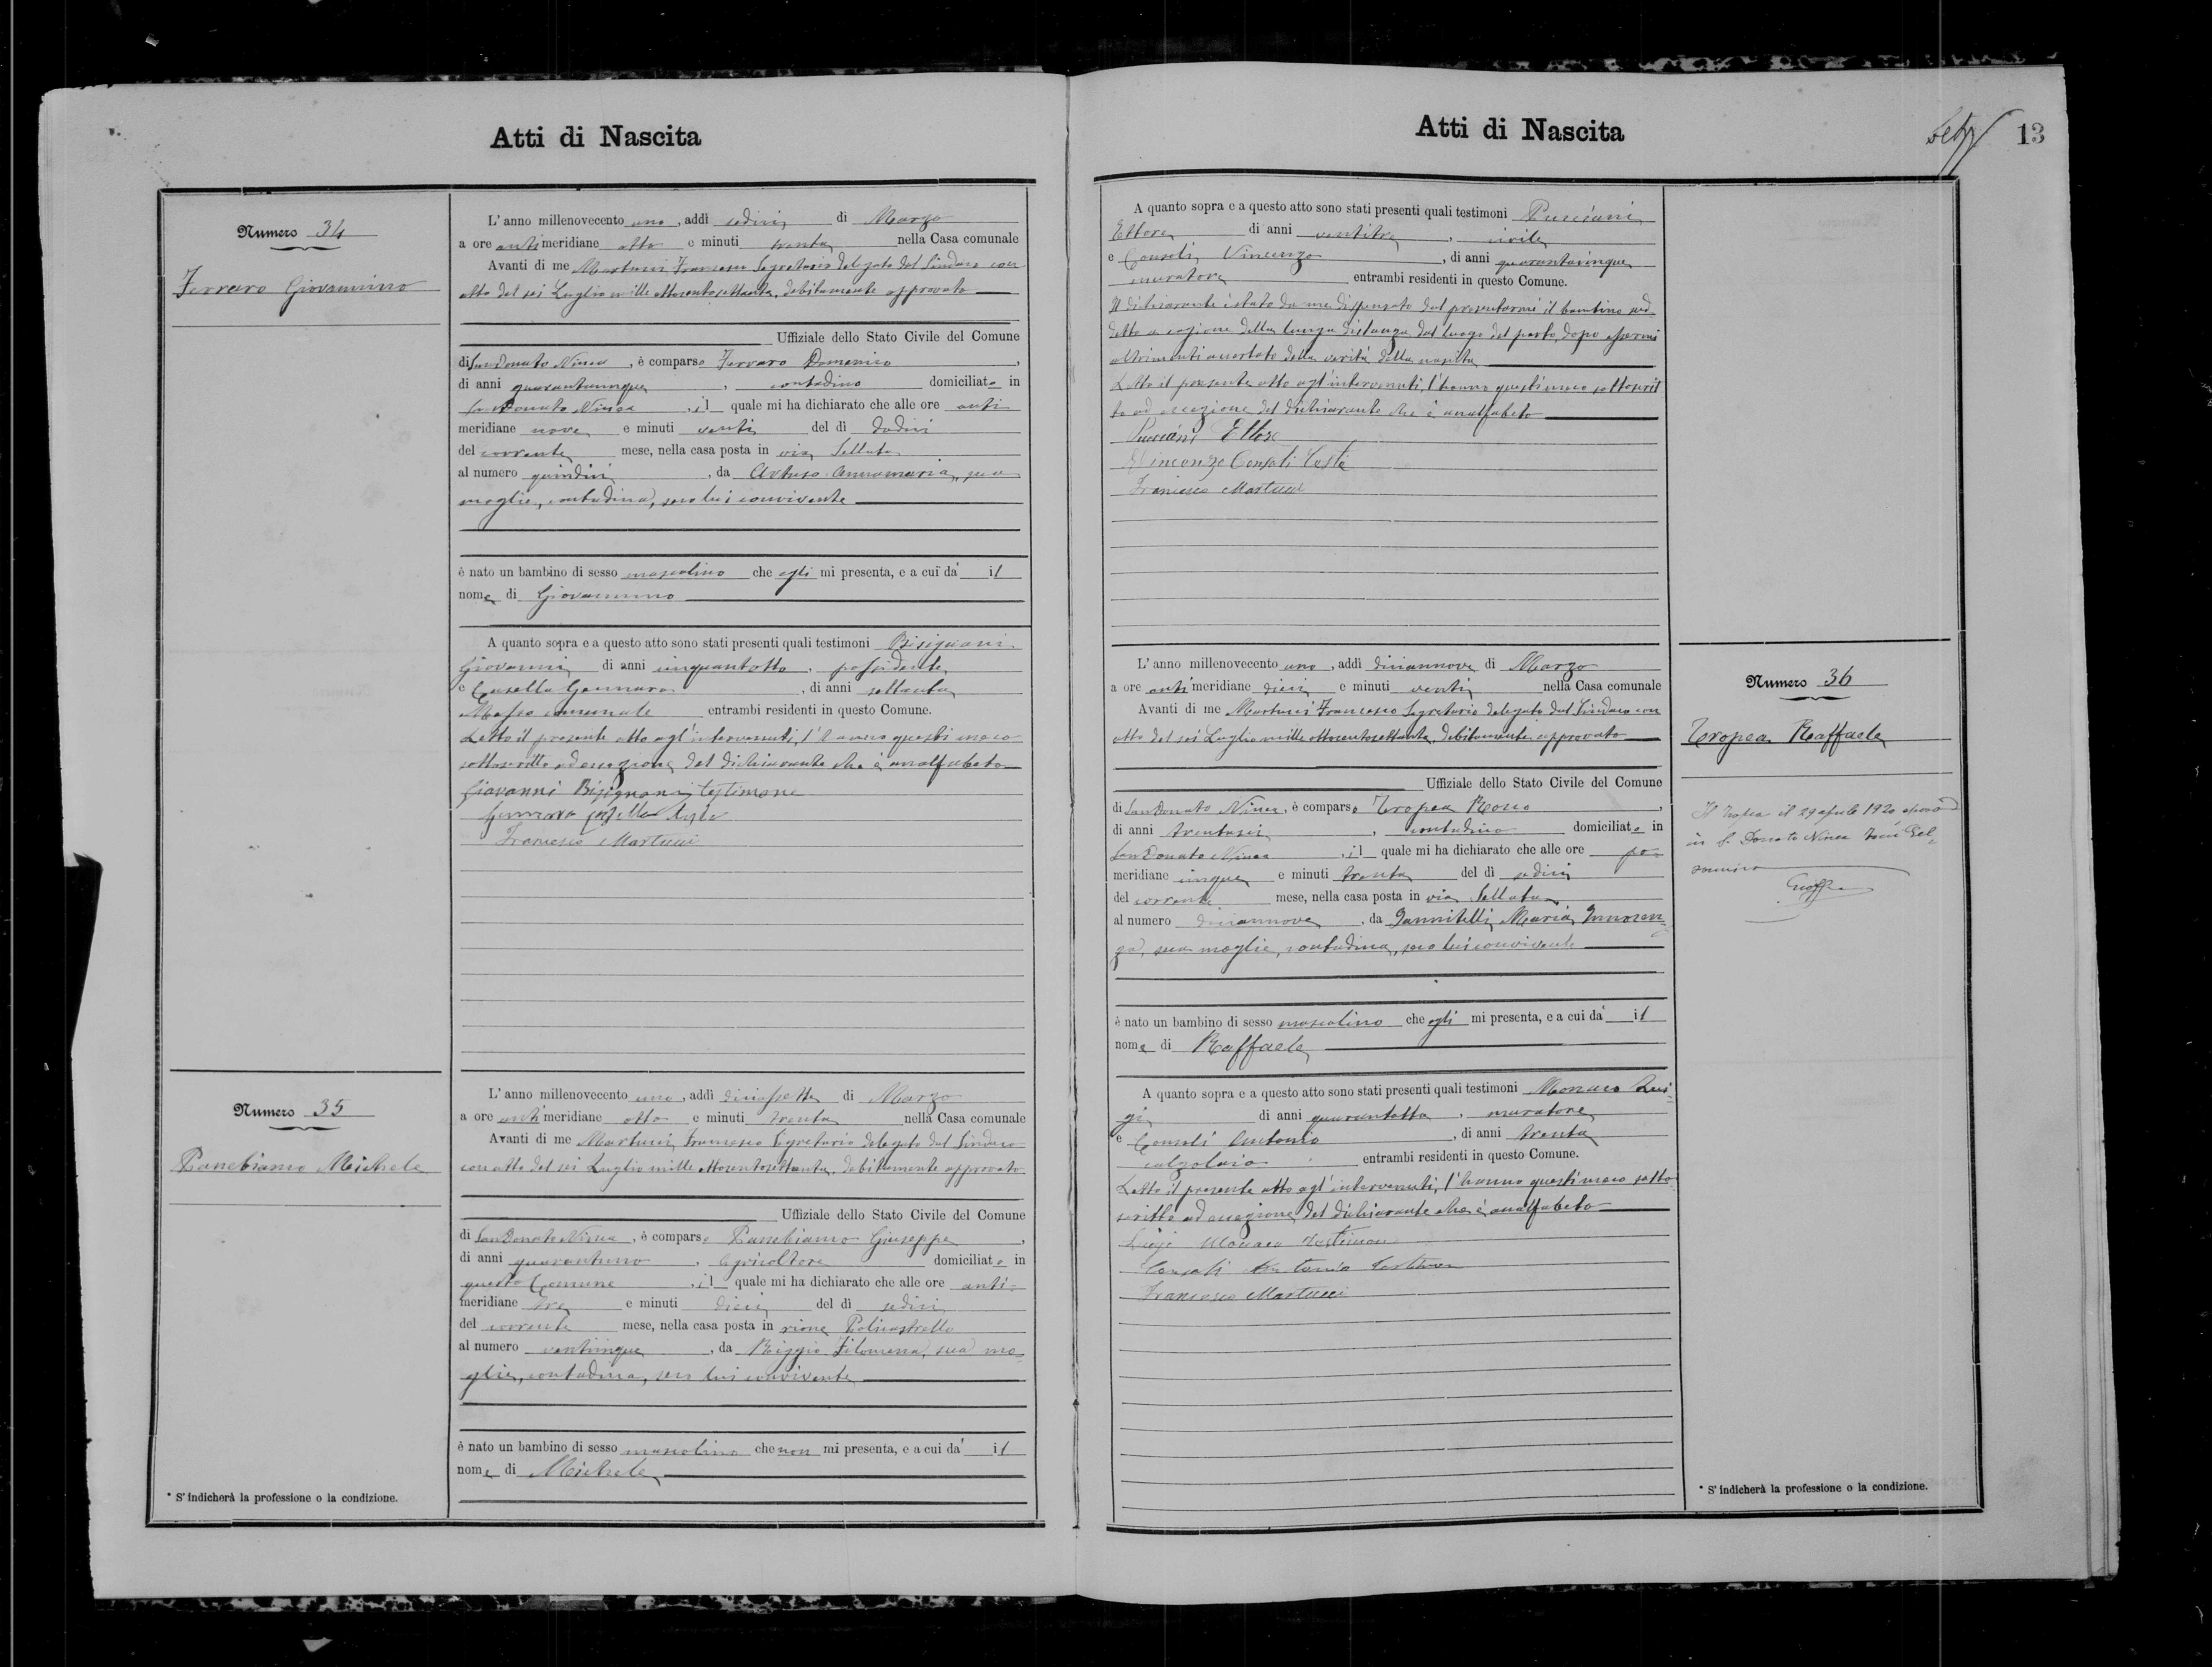 Atti di Nascita
Numero 34
Ferraro Giovannino
L'anno millenovecento uno, addì sedici di Marzo
a ore antimeridiane otto e minuti trenta nella Casa comunale
Avanti di me Martucci Francesco Segretario delegato dal Sindaco con
atto del sei Luglio mille ottocentosettanta, debitamente approvato
Uffiziale dello Stato Civile del Comune
di San Donato Ninea, è comparso Ferraro Domenico,
di anni quarantacinque, contadino domiciliato in
San Donato Ninea, il quale mi ha dichiarato che alle ore anti
meridiane nove e minuti venti del dì dodici
del corrente mese, nella casa posta in via Sellata
al numero quindici, da Artuso Annamaria, sua
moglie, contadina, seco lui convivente
è nato un bambino di sesso mascolino che egli mi presenta, e a cui dà il
nome di Giovannino
A quanto sopra e a questo atto sono stati presenti quali testimoni Bisignani
Giovanni di anni cinquantotto, possidente
e Casella Gennaro, di anni settanta
Messo comunale entrambi residenti in questo Comune.
Letto il presente atto agl'intervenuti, l'hanno questi meco
sottoscritto ad eccezione del dichiarante che è analfabeto
Giovanni Bisignani testimone
Gennaro Casella teste
Francesco Martucci
Numero 35
Panebianco Michele
L'anno millenovecento uno, addì diciassette di Marzo
a ore antimeridiane otto e minuti trenta nella Casa comunale
Avanti di me Martucci Francesco Segretario delegato dal Sindaco
con atto del sei Luglio mille ottocentosettanta, debitamente approvato
Uffiziale dello Stato Civile del Comune
di San Donato Ninea, è comparso Panebianco Giuseppe,
di anni quarantuno, agricoltore domiciliato in
questo Comune, il quale mi ha dichiarato che alle ore anti-
meridiane tre e minuti dieci del dì sedici
del corrente mese, nella casa posta in rione Policastrello
al numero venticinque, da Riggio Filomena, sua mo-
glie, contadina, seco lui convivente
è nato un bambino di sesso mascolino che non mi presenta, e a cui dà il
nome di Michele
* S'indicherà la professione o la condizione.
Atti di Nascita
13
A quanto sopra e a questo atto sono stati presenti quali testimoni Pucciani
Ettore di anni ventitre, civile
e Consoli Vincenzo, di anni quarantacinque
muratore entrambi residenti in questo Comune.
Il dichiarante è stato da me dispensato dal presentarmi il bambino sud
detto a cagione della lunga distanza dal luogo del parto, dopo essermi
altrimenti accertato della verità della nascita
Letto il presente atto agl'intervenuti, l'hanno questi meco sottoscrit
to ad eccezione del dichiarante che è analfabeto
Pucciani Ettore
Vincenzo Consoli Teste
Francesco Martucci
L'anno millenovecento uno, addì diciannove di Marzo
a ore antimeridiane dieci e minuti venti nella Casa comunale
Avanti di me Martucci Francesco Segretario delegato dal Sindaco con
atto del sei Luglio mille ottocentosettanta, debitamente approvato
Uffiziale dello Stato Civile del Comune
di San Donato Ninea, è comparso Tropea Rocco,
di anni trentasei, contadino domiciliato in
San Donato Ninea, il quale mi ha dichiarato che alle ore po-
meridiane cinque e minuti trenta del dì sedici
del corrente mese, nella casa posta in via Sellata
al numero diciannove, da Iannitelli Maria Innocen-
za, sua moglie, contadina, seco lui convivente
è nato un bambino di sesso mascolino che egli mi presenta, e a cui dà il
nome di Raffaele
A quanto sopra e a questo atto sono stati presenti quali testimoni Monaco Lui-
gi di anni quarantotto, muratore
e Consoli Antonio, di anni trenta
calzolaio entrambi residenti in questo Comune.
Letto il presente atto agl'intervenuti, l'hanno questi meco sotto
scritto ad eccezione del dichiarante che è analfabeto
Luigi Monaco testimone
Consoli Antonio testimone
Francesco Martucci
Numero 36
Tropea Raffaele
Il Tropea il 29 aprile 1920 sposò
in S. Donato Ninea
* S'indicherà la professione o la condizione.